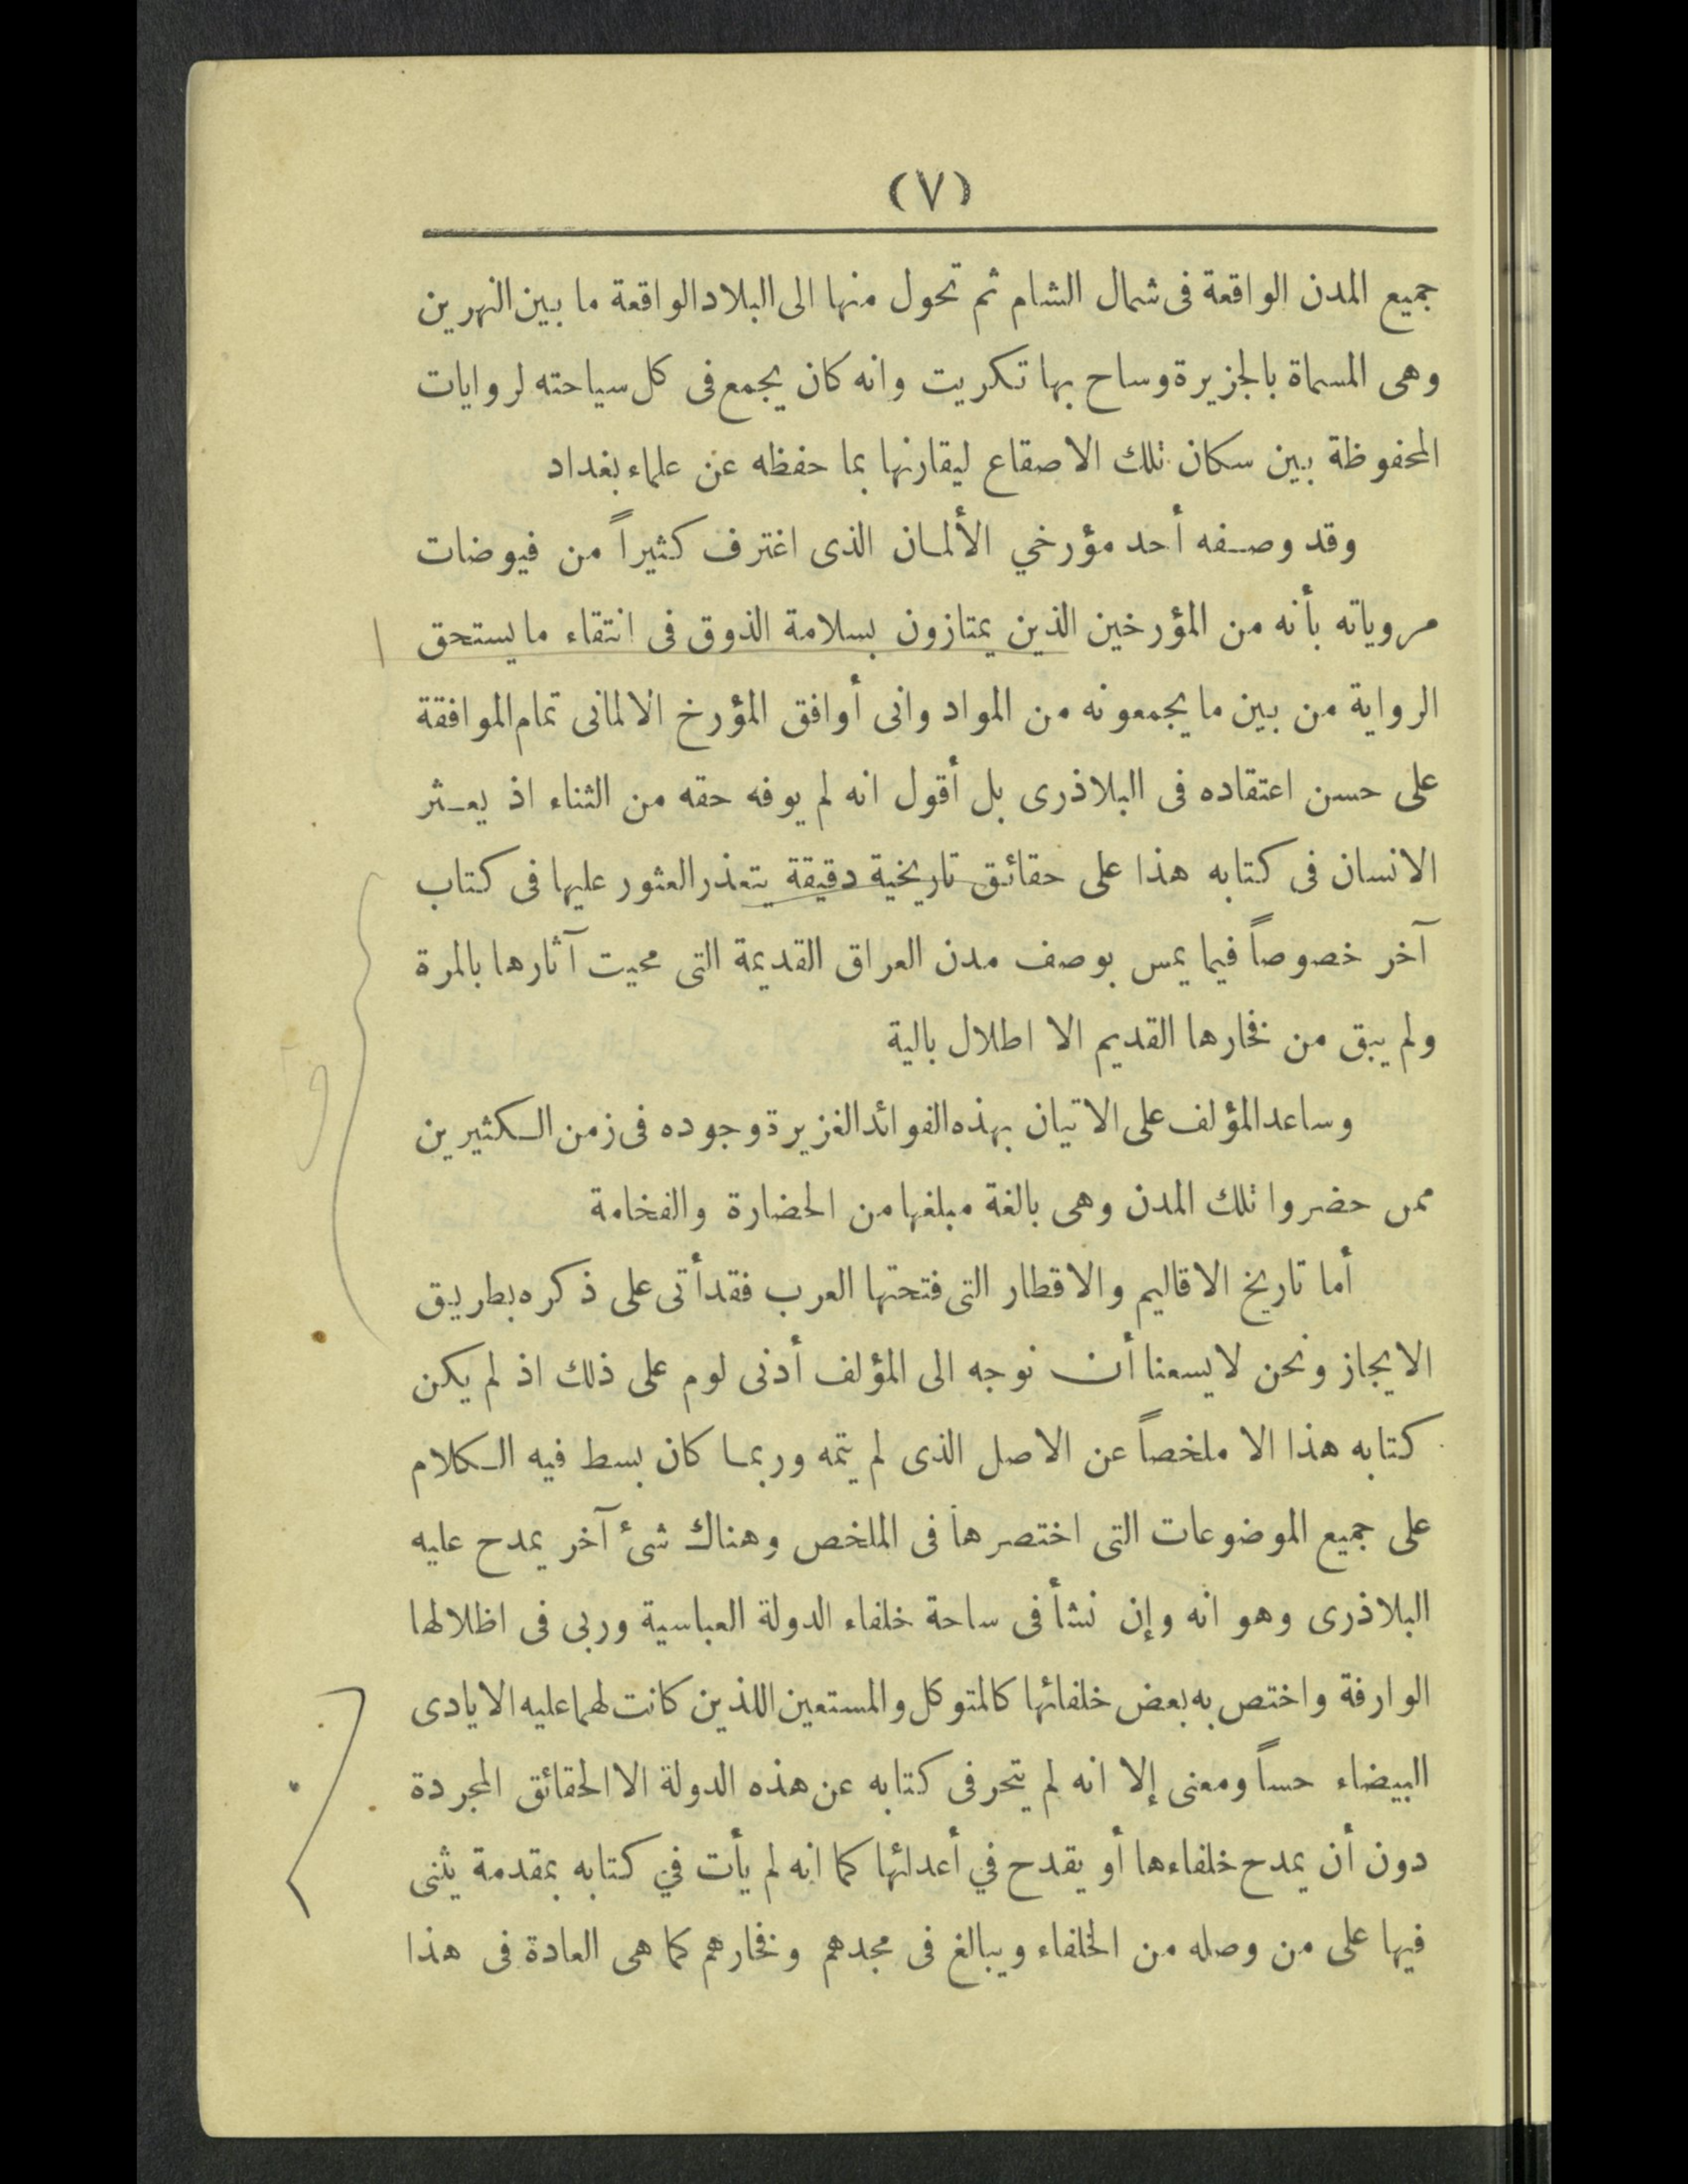 (٧)
جميع المدن الواقعة فى شمال الشام ثم تحول منها الى البلاد الواقعة ما بين النهرين
وهى المسماة بالجزيرة وساح بها تكريت وانه كان يجمع فى كل سياحته لروايات
المحفوظة بين سكان تلك الاصقاع ليقارنها بما حفظه عن علماء بغداد
وقد وصفه أحد مؤرخي الألمان الذى اغترف كثيراً من فيوضات
مروياته بأنه من المؤرخين الذين يمتازون بسلامة الذوق فى انتقاء ما يستحق
الرواية من بين ما يجمعونه من المواد وانى أوافق المؤرخ الالمانى تمام الموافقة
على حسن اعتقاده فى البلاذرى بل أقول انه لم يوفه حقه من الثناء اذ يعثر
الانسان فى كتابه هذا على حقائق تاريخية دقيقة يتعذر العثور عليها فى كتاب
آخر خصوصاً فيما يمس بوصف مدن العراق القديمة التى محيت آثارها بالمرة
ولم يبق من فخارها القديم الا اطلال بالية
وساعد المؤلف على الاتيان بهذه الفوائد الغزيرة وجوده فى زمن الكثيرين
ممن حضروا تلك المدن وهى بالغة مبلغها من الحضارة والفخامة
أما تاريخ الاقاليم والاقطار التى فتحتها العرب فقد أتى على ذكره بطريق
الايجاز ونحن لا يسعنا أن نوجه الى المؤلف أدنى لوم على ذلك اذ لم يكن
كتابه هذا الا ملخصاً عن الاصل الذى لم يتمه وربما كان بسط فيه الكلام
على جميع الموضوعات التى اختصرها فى الملخص وهناك شئ آخر يمدح عليه
البلاذرى وهو انه وإن نشأ فى ساحة خلفاء الدولة العباسية وربى فى اظلالها
الوارفة واختص به بعض خلفائها كالمتوكل والمستعين اللذين كانت لهما عليه الايادى
البيضاء حساً ومعنى إلا انه لم يتحر فى كتابه عن هذه الدولة الا الحقائق المجردة
دون أن يمدح خلفاءها أو يقدح في أعدائها كما انه لم يأت في كتابه بمقدمة يثنى
فيها على من وصله من الخلفاء ويبالغ فى مجدهم وفخارهم كما هى العادة فى هذا